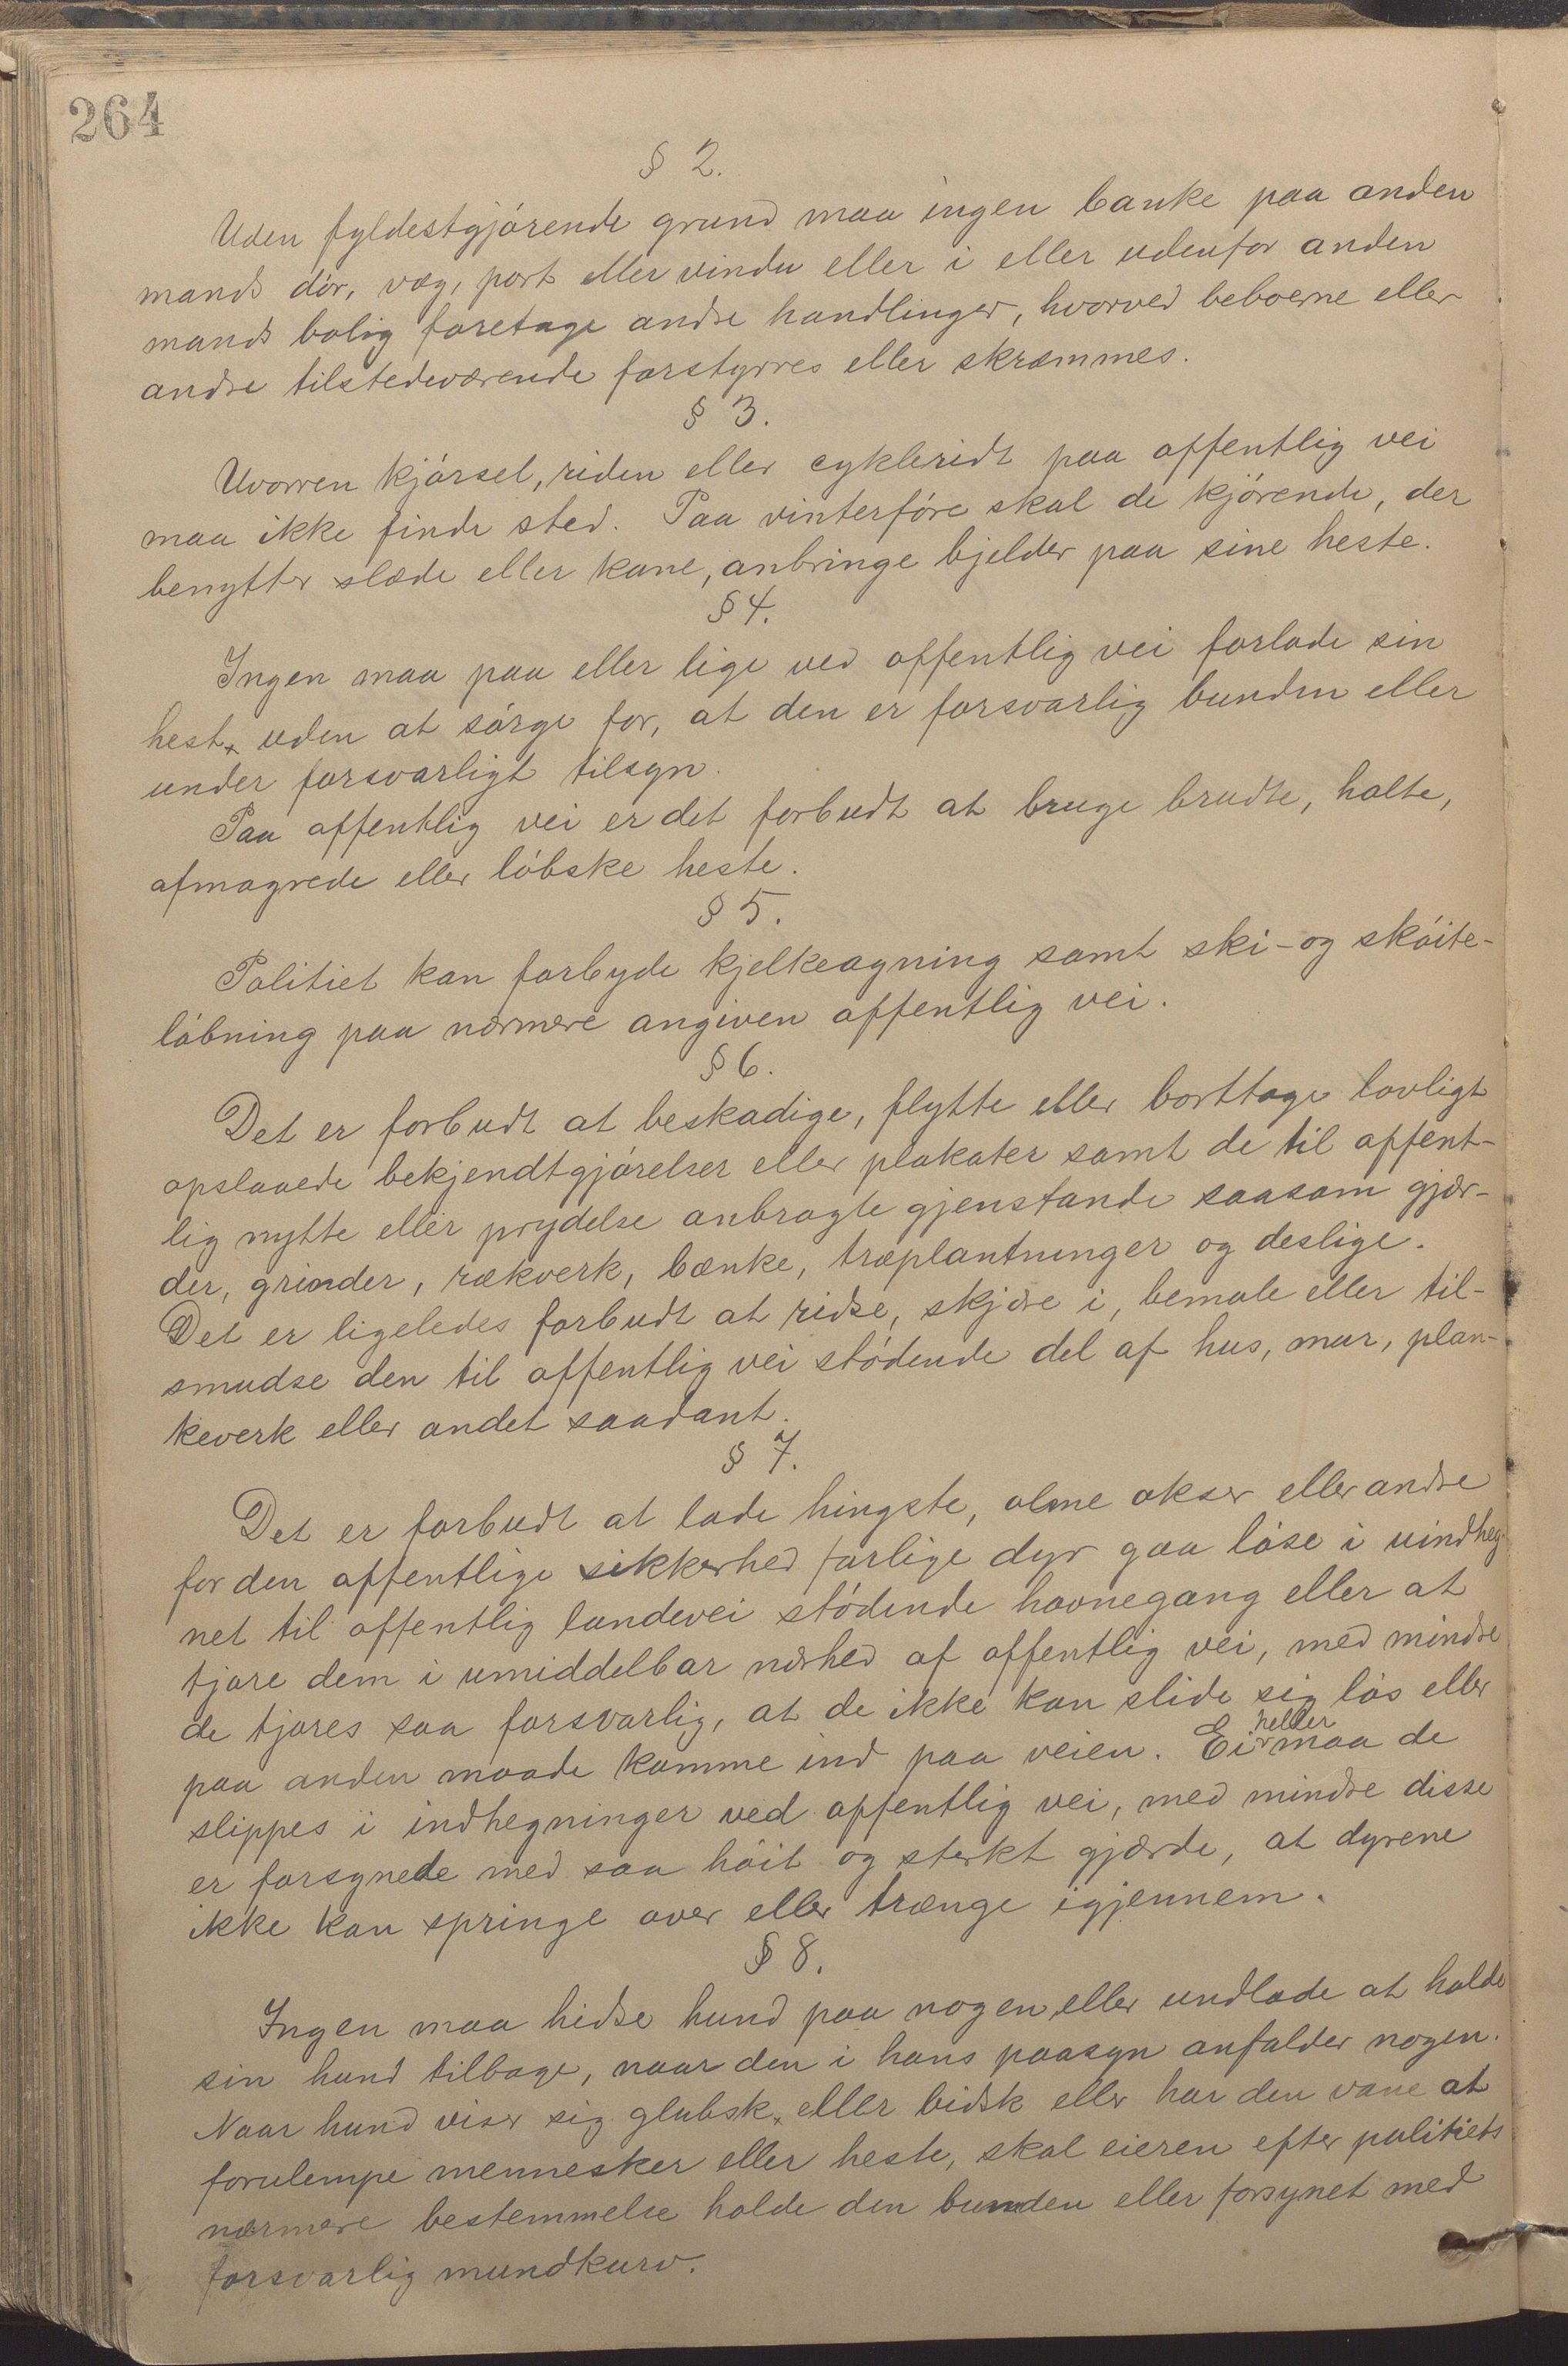 264
§ 2.
Uden fyldestgjórende grund maa ingen banke paa anden
mands dór, væg, port eller vindu eller i eller udenfor anden
mands bolig foretage andre handlinger, hvorved beboerne eller
andre tilstedeværende forstyrres eller skræmmes.
§ 3.
Uvorren kjórsel, riden eller cykleridt paa offentlig vei
maa ikke finde sted. Paa vinterfóre skal de kjórende, der
benytter slæde eller kane, anbringe bjelder paa sine heste.
§ 4.
Ingen maa paa eller lige ved offentlig vei forlade sin
hest, uden at sórge for, at den er forsvarlig bunden eller
under forsvarligt tilsyn.
Paa offentlig vei er det forbudt at bruge brudte, halte,
afmagrede eller lóbske heste.
§ 5.
Politiet kan forbyde kjelkeagning samt ski- og skóite-
lóbning paa nærmere angiven offentlig vei.
§ 6.
Det er forbudt at beskadige, flytte eller borttage lovligt
opslaaede bekjendtgjórelser eller plakater samt de til offent-
lig nytte eller prydelse anbragte gjenstande saasom gjær-
der, grinder, rækverk, bænke, træplantninger og deslige.
Det er ligeledes forbudt at ridse, skjære i, bemale eller til-
smudse den til offentlig vei stódende del af hus, mur, plan-
keverk eller andet saadant.
§ 7.
Det er forbudt at lade hingste, olme okser eller andre
for den offentlige sikkerhed farlige dyr gaa lóse i uindheg-
net til offentlig landevei stódende havnegang eller at
tjore dem i umiddelbar nærhed af offentlig vei, med mindre
de tjores saa forsvarlig, at de ikke kan slide sig lós eller
paa anden maade komme ind paa veien. Ei heller maa de
slippes i indhegninger ved offentlig vei, med mindre disse
er forsynede med saa hóit og sterkt gjærde, at dyrene
ikke kan springe over eller trænge igjennem.
§ 8.
Ingen maa hidse hund paa nogen eller undlade at holde
sin hund tilbage, naar den i hans paasyn anfalder nogen.
Naar hund viser sig glubsk, eller bidsk eller har den vane at
forulempe mennesker eller heste, skal eieren efter politiets
nærmere bestemmelse holde den bunden eller forsynet med
forsvarlig mundkurv.